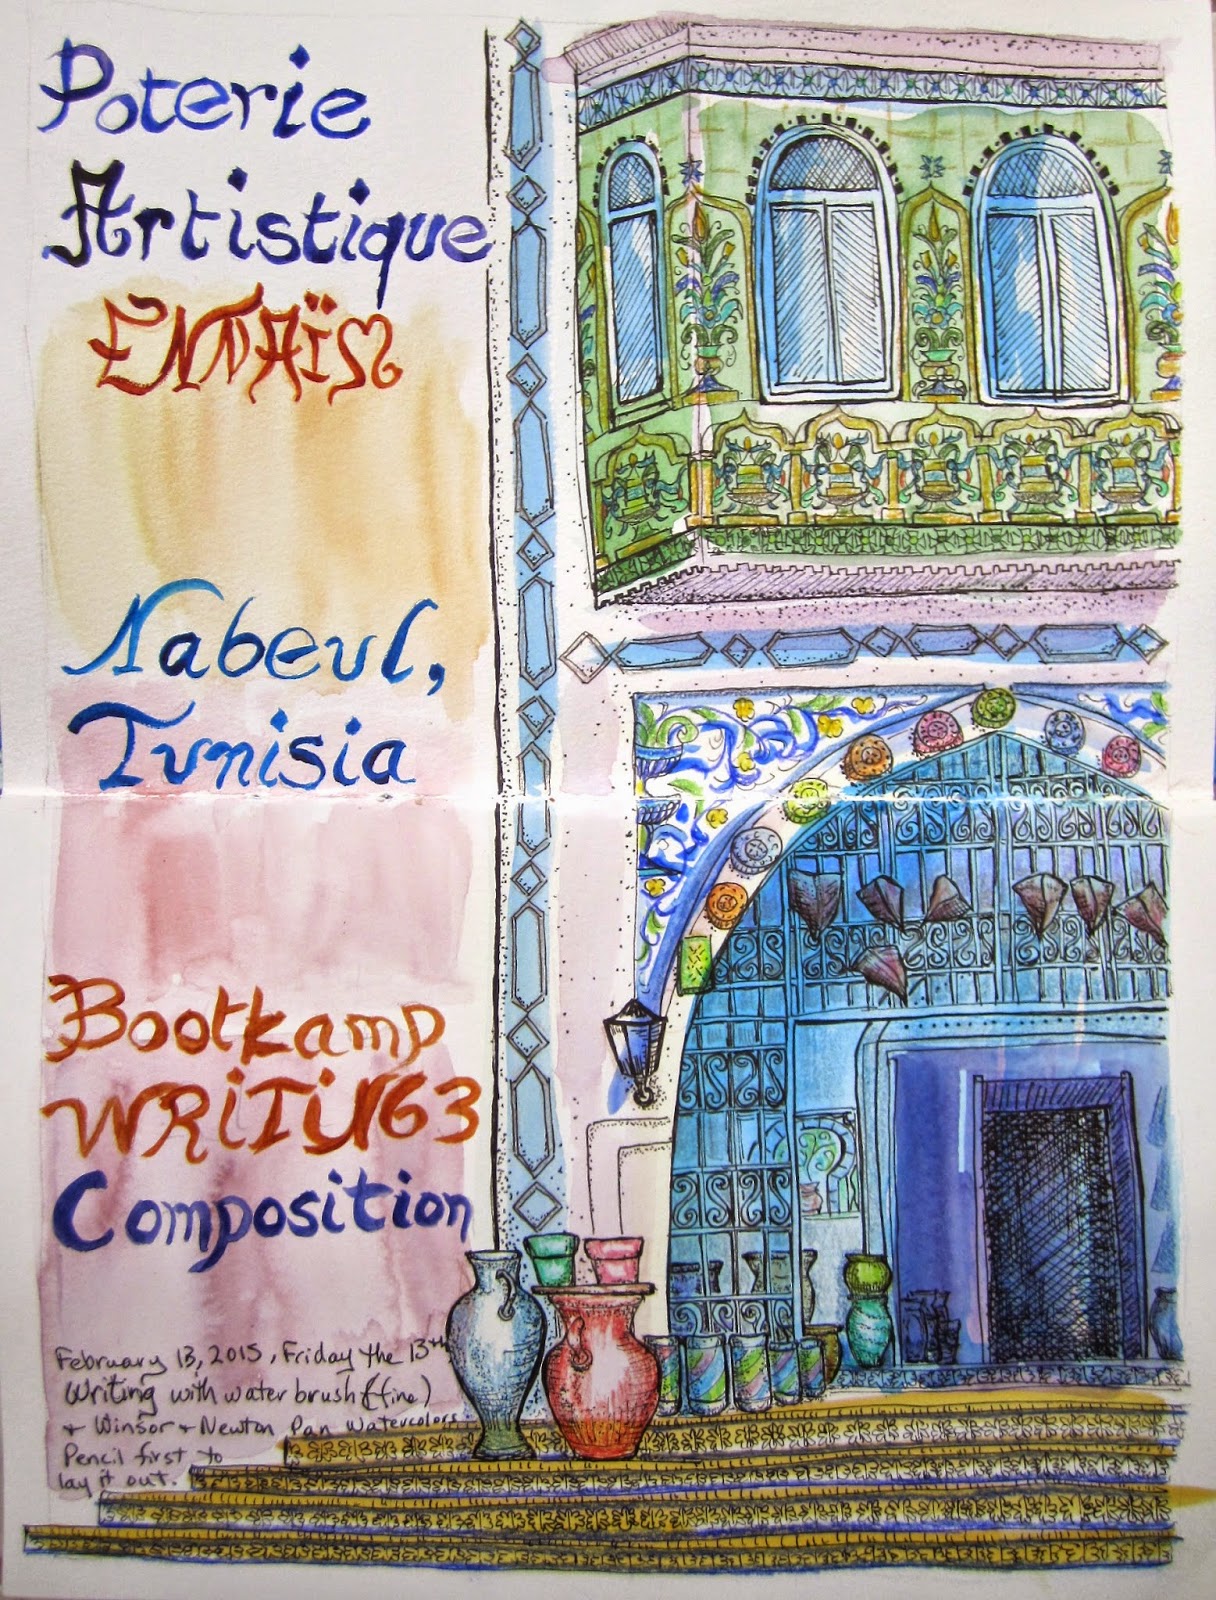 Poterie
Artistique
ENNAÏM
Nabeul,
Tunisia
Bootkamp
WRiTiNG3
Composition
February 13, 2015, Friday the 13th
Writing with water brush (fine)
+ Winsor + Newton Pan Watercolors
Pencil first to
lay it out.